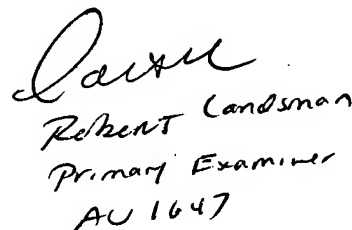 Robert Landsman
Primary Examiner
AU 1647